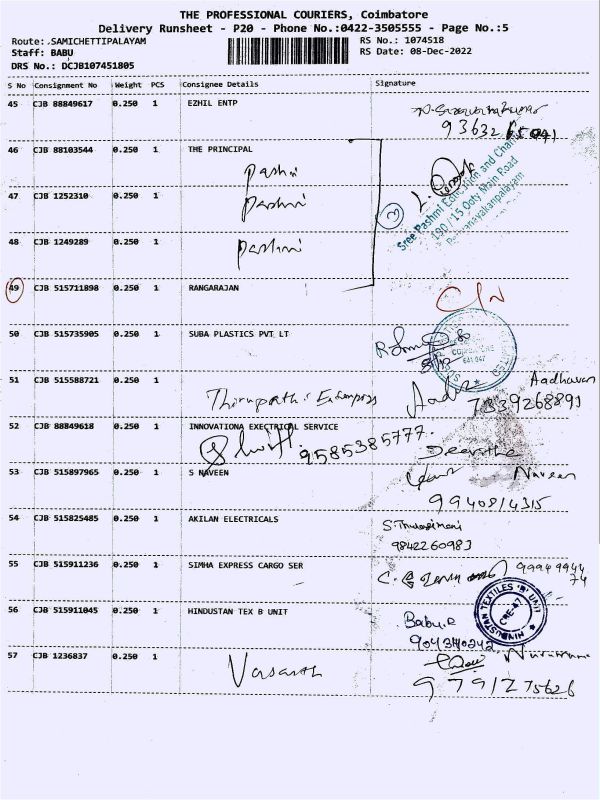 THE PROFESSIONAL COURIERS, Coimbatore
Delivery Runsheet - P20 - Phone No.:0422-3505555 - Page No.:5
Route: .SAMICHETTIPALAYAM
RS No.: 1074518
Staff: BABU
RS Date: 08-Dec-2022
DRS No.: DCJB107451805
S No Consignment No Weight PCS Consignee Details Signature
45 CJB 88849617 0.250 1 EZHIL ENTP
46 CJB 88103544 0.250 1 THE PRINCIPAL
Pashni
47 CJB 1252310 0.250 1
Pashni
3
Sree Pashmi Education and
190 / 15 Ooty Main Road
48 CJB 1249289 0.250 1
Pashni
49 CJB 515711898 0.250 1 RANGARAJAN
C/N
50 CJB 515735905 0.250 1 SUBA PLASTICS PVT LT
641 047
51 CJB 515588721 0.250 1
Aadhavan
7339268891
52 CJB 88849618 0.250 1 INNOVATIONA EXECTRICAL SERVICE
9585385777.
53 CJB 515897965 0.250 1 S NAVEEN
Naveen
9940814315
54 CJB 515825485 0.250 1 AKILAN ELECTRICALS
9842260983
55 CJB 515911236 0.250 1 SIMHA EXPRESS CARGO SER
99949944
74
56 CJB 515911045 0.250 1 HINDUSTAN TEX B UNIT
HINDUSTAN TEXTILES 'B' UNIT
CBE-47
Babu.R
9043410242
57 CJB 1236837 0.250 1
Vasanth
9791275626